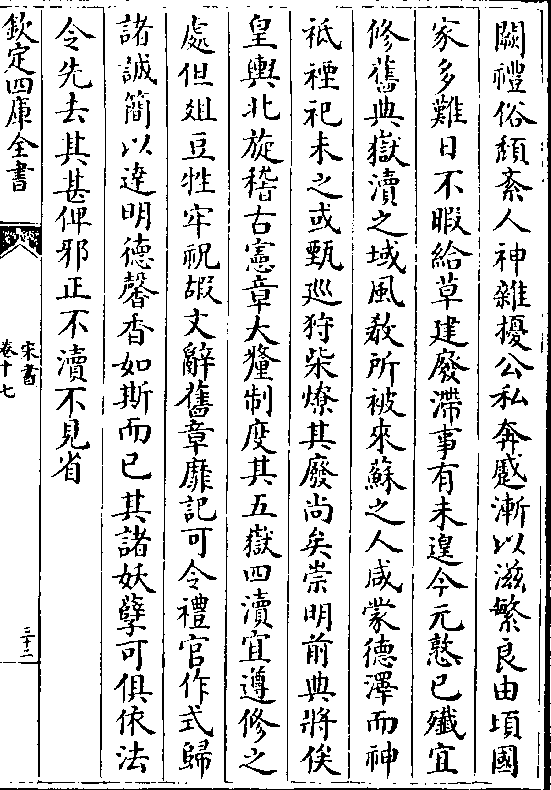 闕禮俗頹紊人神雜擾公私奔蹙漸以滋繁良由頃國
家多難日不暇給草建廢滯事有未遑今元憝已殲宜
修舊典嶽瀆之域風敎所被來蘇之人咸蒙德澤而神
祗禋祀未之或甄巡狩柴燎其廢尚矣崇明前典將俟
皇輿北旋稽古憲章大釐制度其五嶽四瀆宜遵修之
處但俎豆牲牢祝嘏文辭舊章靡記可令禮官作式歸
諸誠簡以逹明德馨香如斯而已其諸妖孽可俱依法
令先去其甚俾邪正不瀆不見省
欽定四庫全書
宋書
卷十七
三十二